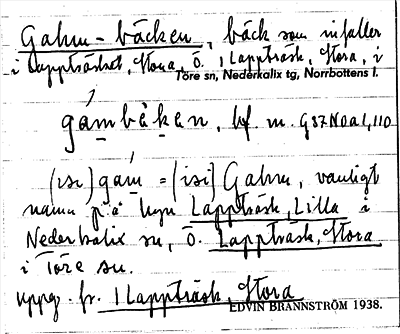 Gahm-bäcken, bäck som infaller
i Lappträsket, Stora, Ö. 1 Lappträsk, Stora, i
Töre sn, Nederkalix tg, Norrbottens l.
gámbäkan, bf. m. 
(isi) gam = (isi) Gahm, vanligt
namn på byn Lappträsk, Lilla i
Nederkalix sn, Ö. Lappträsk, Stora
i Töre sn.
uppg. fr. 1 Lappträsk, Stora
EDVIN BRÄNNSTRÖM 1938.